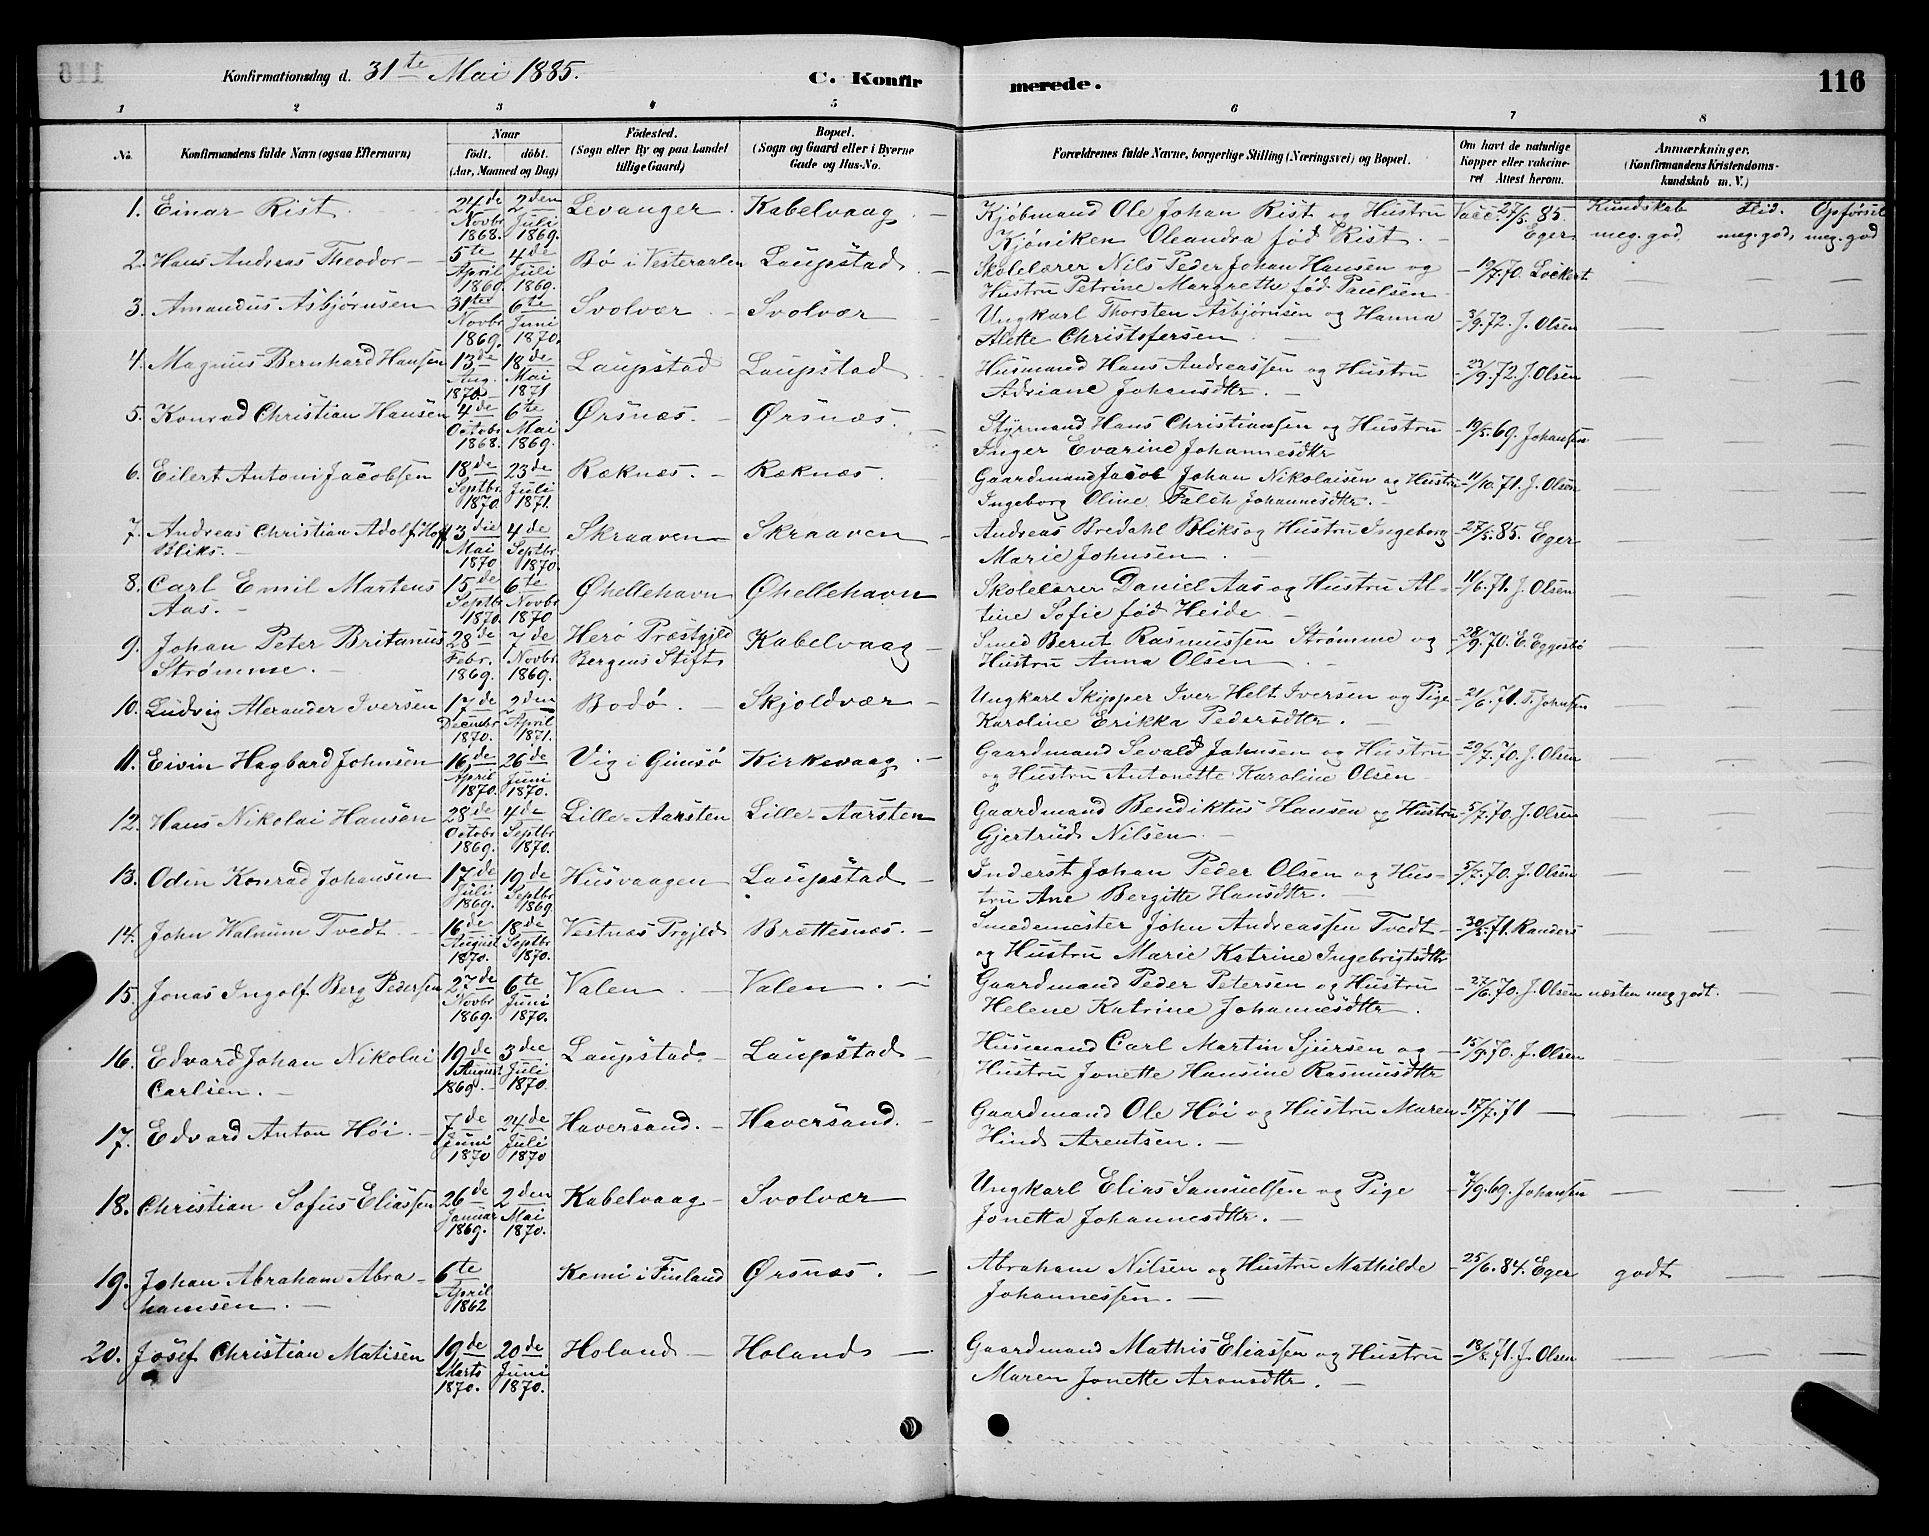 Konfirmationsdag d. 31te Mai 1885. C. Konfirmerede. 116
1 2 3 4 5 6 7 8
No. Konfirmandens fulde Navn (ogsaa Efternavn) Naar født. døbt. (Aar, Maaned og Dag) Fødested. (Sogn eller By og paa Landet tillige Gaard) Bopæl. (Sogn og Gaard eller i Byerne Gade og Hus-No. Forældrenes fulde Navne, borgerlige Stilling (Næringsvei) og Bopæl. Om havt de naturlige Kopper eller vakcineret Attest herom. Anmærkninger. (Konfirmandens Kristendomskundskab m. V.)
1. Einar Rist 24de Novbr 1868. 2den Juli 1869. Levanger. Kabelvaag Kjøbmand Ole Johan Rist og Hustru Kjøniken Oleandra fød Rist. Vacc 27/5. 85. Eger Kundskab meg. god Flid. meg. god, Opførsel meg. god
2. Hans Andreas Theodor 5te April 1869 4de Juli 1869. Bø i Vesteraalen Laupstad Skolelærer Nils Peder Johan Hansen og Hustru Petrine Margrethe fød Paulsen 19/7. 70. Lockert
3. Amandus Asbjørnsen 31te Novbr 1869. 6te Juni 1870. Svolvær Svolvær Ungkarl Thorsten Asbjørnsen og Hanna Alette Christofersen 3/9. 72. J. Olsen
4. Magnus Bernhard Hansen 13de Aug. 1870 18de Mai 1871 Laupstad Laupstad Husmand Hans Andreassen og Hustru Adriane Johansdtr. 23/9. 72. J. Olsen
5. Konrad Christian Hansen 4de Octobr 1868. 6te Mai 1869. Ørsnæs. Ørsnæs. Styrmand Hans Christiansen og Hustru Inger Evarine Johannesdtr 19/5. 69. Johansen
6. Eilert Antoni Jacobsen 18de Septbr 1870 23de Juli 1871. Ræknæs. Ræknæs. Gaardmand Jacob Johan Nikolaisen og Hustru Ingeborg Oline Falch Johannesdtr. 11/10. 71. J. Olsen
7. Andreas Christian Adolf Hoff Bliks. 3die Mai 1870 4de Septbr 1870. Skraaven Skraaven Andreas Bredahl Bliks og Hustru Ingeborg Marie Johnsen 27/5. 85. Eger
8. Carl Emil Martens Aas. 15de Septbr 1870. 6te Novbr 1870 Øhellehavn Øhellehavn Skolelærer Daniel Aas og Hustru Altine Sofie fød Heide 11/6. 71. J. Olsen
9. Johan Peter Britanus Strømme. 28de Febr. 1869. 7de Novbr 1869. Herø Præstgjeld Bergens Stift Kabelvaag Smed Bernt Rasmussen Strømme og Hustru Anna Olsen 28/9. 70. E. Eggesbø
10. Ludvig Alexander Iversen 17de Decembr 1870. 2den April 1871. Bodø. Skjoldvær Ungkarl Skipper Iver Helt Iversen og Pige Karoline Erikka Pedersdtr. 21/6. 71. Johnsen
11. Eivin Hagbard Johnsen 16de April 1870. 26de Juni 1870. Vig i Gimsø Kirkevaag Gaardmand Sevald Johnsen og Hustru og Hustru Antonette Karoline Olsen 29/7. 70. J. Olsen
12. Hans Nikolai Hansen 28de Octobr 1869. 4de Septbr 1870. Lille-Aarsten Lille-Aarsten Gaardmand Bendiktus Hansen og Hustru Gjertrud Nilsen. 5/7. 70. J. Olsen
13. Odin Konrad Johansen 17de Juli 1869. 19de Septbr 1869 Husvaagen Laupstad Inderst Johan Peder Olsen og Hustru Ane Bergitte Hansdtr. 5/7. 70. J. Olsen
14. John Halnum Tvedt 16de August 1870. 18de Septbr 1870. Vestnæs Prgjeld Brettesnæs. Smedemester John Andreassen Tvedt og Hustru Marie Katrine Ingebrigtsdtr 30/8. 71. Randers
15. Jonas Ingolf Berg Pedersen 27de Novbr 1869. 6te Juni 1870. Valen Valen Gaardmand Peder Petersen og Hustru Helene Katrine Johannesdtr. 27/6. 70. J. Olsen næsten meg godt.
16. Edvard Johan Nikolai Carlsen. 19de August 1869. 3die Juli 1870. Laupstad Laupstad Husmand Carl Martin Sjursen og Hustru Jonette Hansine Rasmusdtr 15/9. 70. J. Olsen
17. Edvard Anton Høi 7de Juni 1870 24de Juli 1870 Haversand. Haversand. Gaardmand Ole Høi og Hustru Maren Hind Arentsen. 17/7. 71
18. Christian Sofus Eliassen 26de Januar 1869. 2den Mai 1870. Kabelvaag Svolvær Ungkarl Elias Samuelsen og Pige Jonetta Johannesdtr. 7/9. 69. Johansen
19. Johan Abraham Abrahamsen. 6te April 1862 Kemi i Finland Ørsnæs. Abraham Nilsen og Hustru Mathilde Johannessen. 25/6. 84. Eger godt
20. Josef Christian Matisen 19de Marts 1870. 20de Juni 1870. Holand Holand Gaardmand Mathis Eliassen og Hustru Maren Jonette Aronsdtr. 18/8. 71. J. Olsen